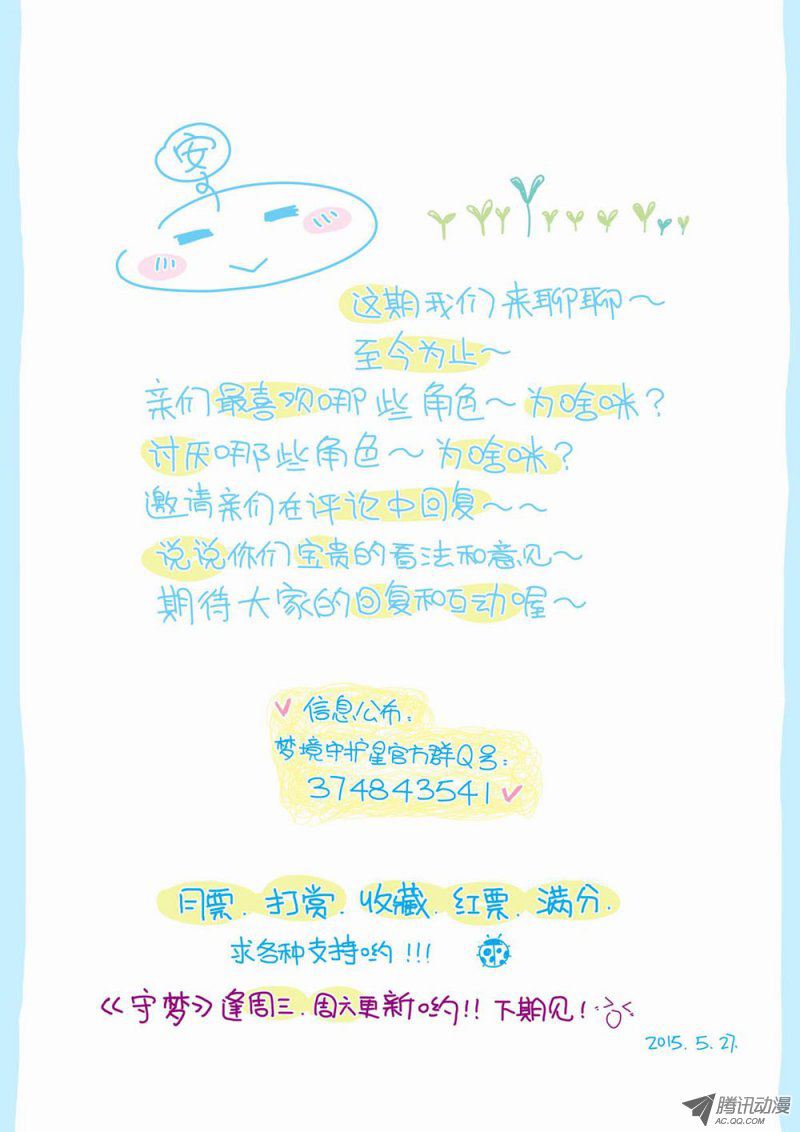 安
这期我们来聊聊～
至今为止～
亲们最喜欢哪些角色～为啥咪？
讨厌哪些角色～为啥咪？
邀请亲们在评论中回复～～
说说你们宝贵的看法和意见～
期待大家的回复和互动喔～
信息公布：
梦境守护星官方群Q号：
374843541
月票.打赏.收藏.红票.满分.
求各种支持哟!!!
《守梦》逢周三.周六更新哟!!下期见!
2015.5.27.
腾讯动漫
AC.QQ.COM